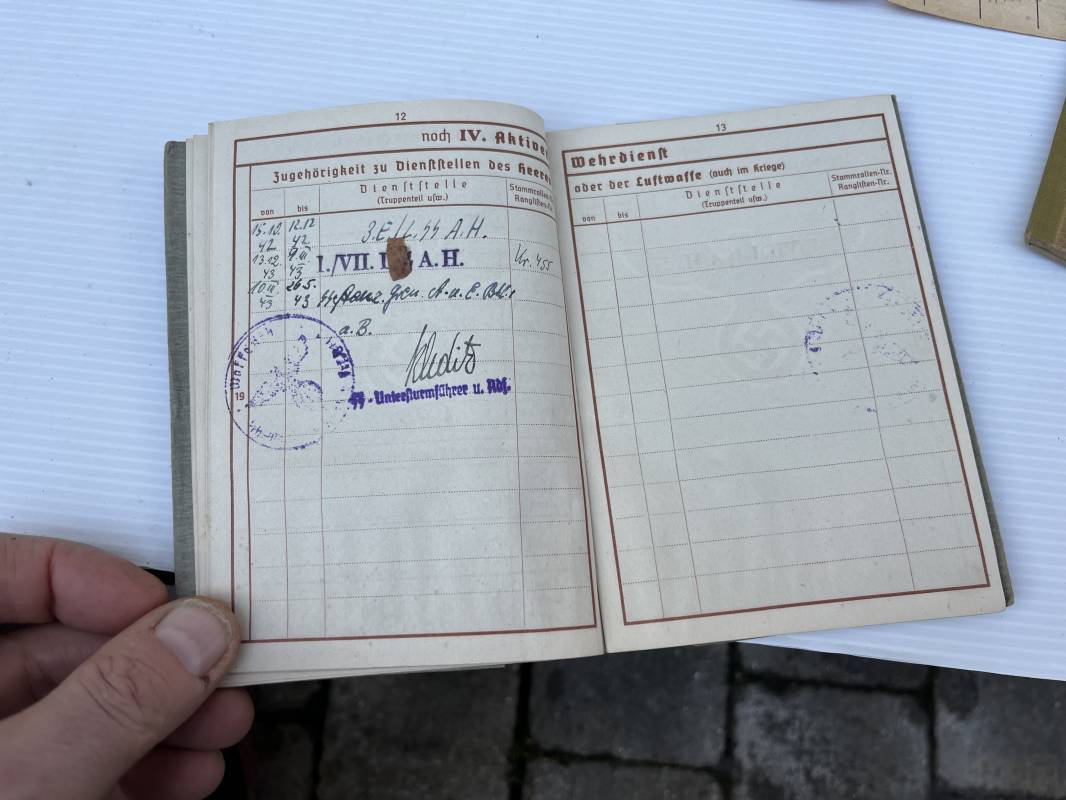 12
noch IV. Aktiver
Zugehörigkeit zu Dienststellen des Heeres
von
bis
Dienststelle
(Truppenteil usw.)
Stammrollen-Nr.
Ranglisten-Nr.
15.12 42
12.12 42
3.E./L.SS A.H.
13.12. 43
9.III 43
I./VII. A.H.
Nr. 455
10 III. 43
26.5. 43
SS Panz. Gren. A.u.E. Btl. 1
a.B.
Waffen
SS-Untersturmführer u. Adj.
19
13
Wehrdienst
oder der Luftwaffe (auch im Kriege)
von
bis
Dienststelle
(Truppenteil usw.)
Stammrollen-Nr.
Ranglisten-Nr.